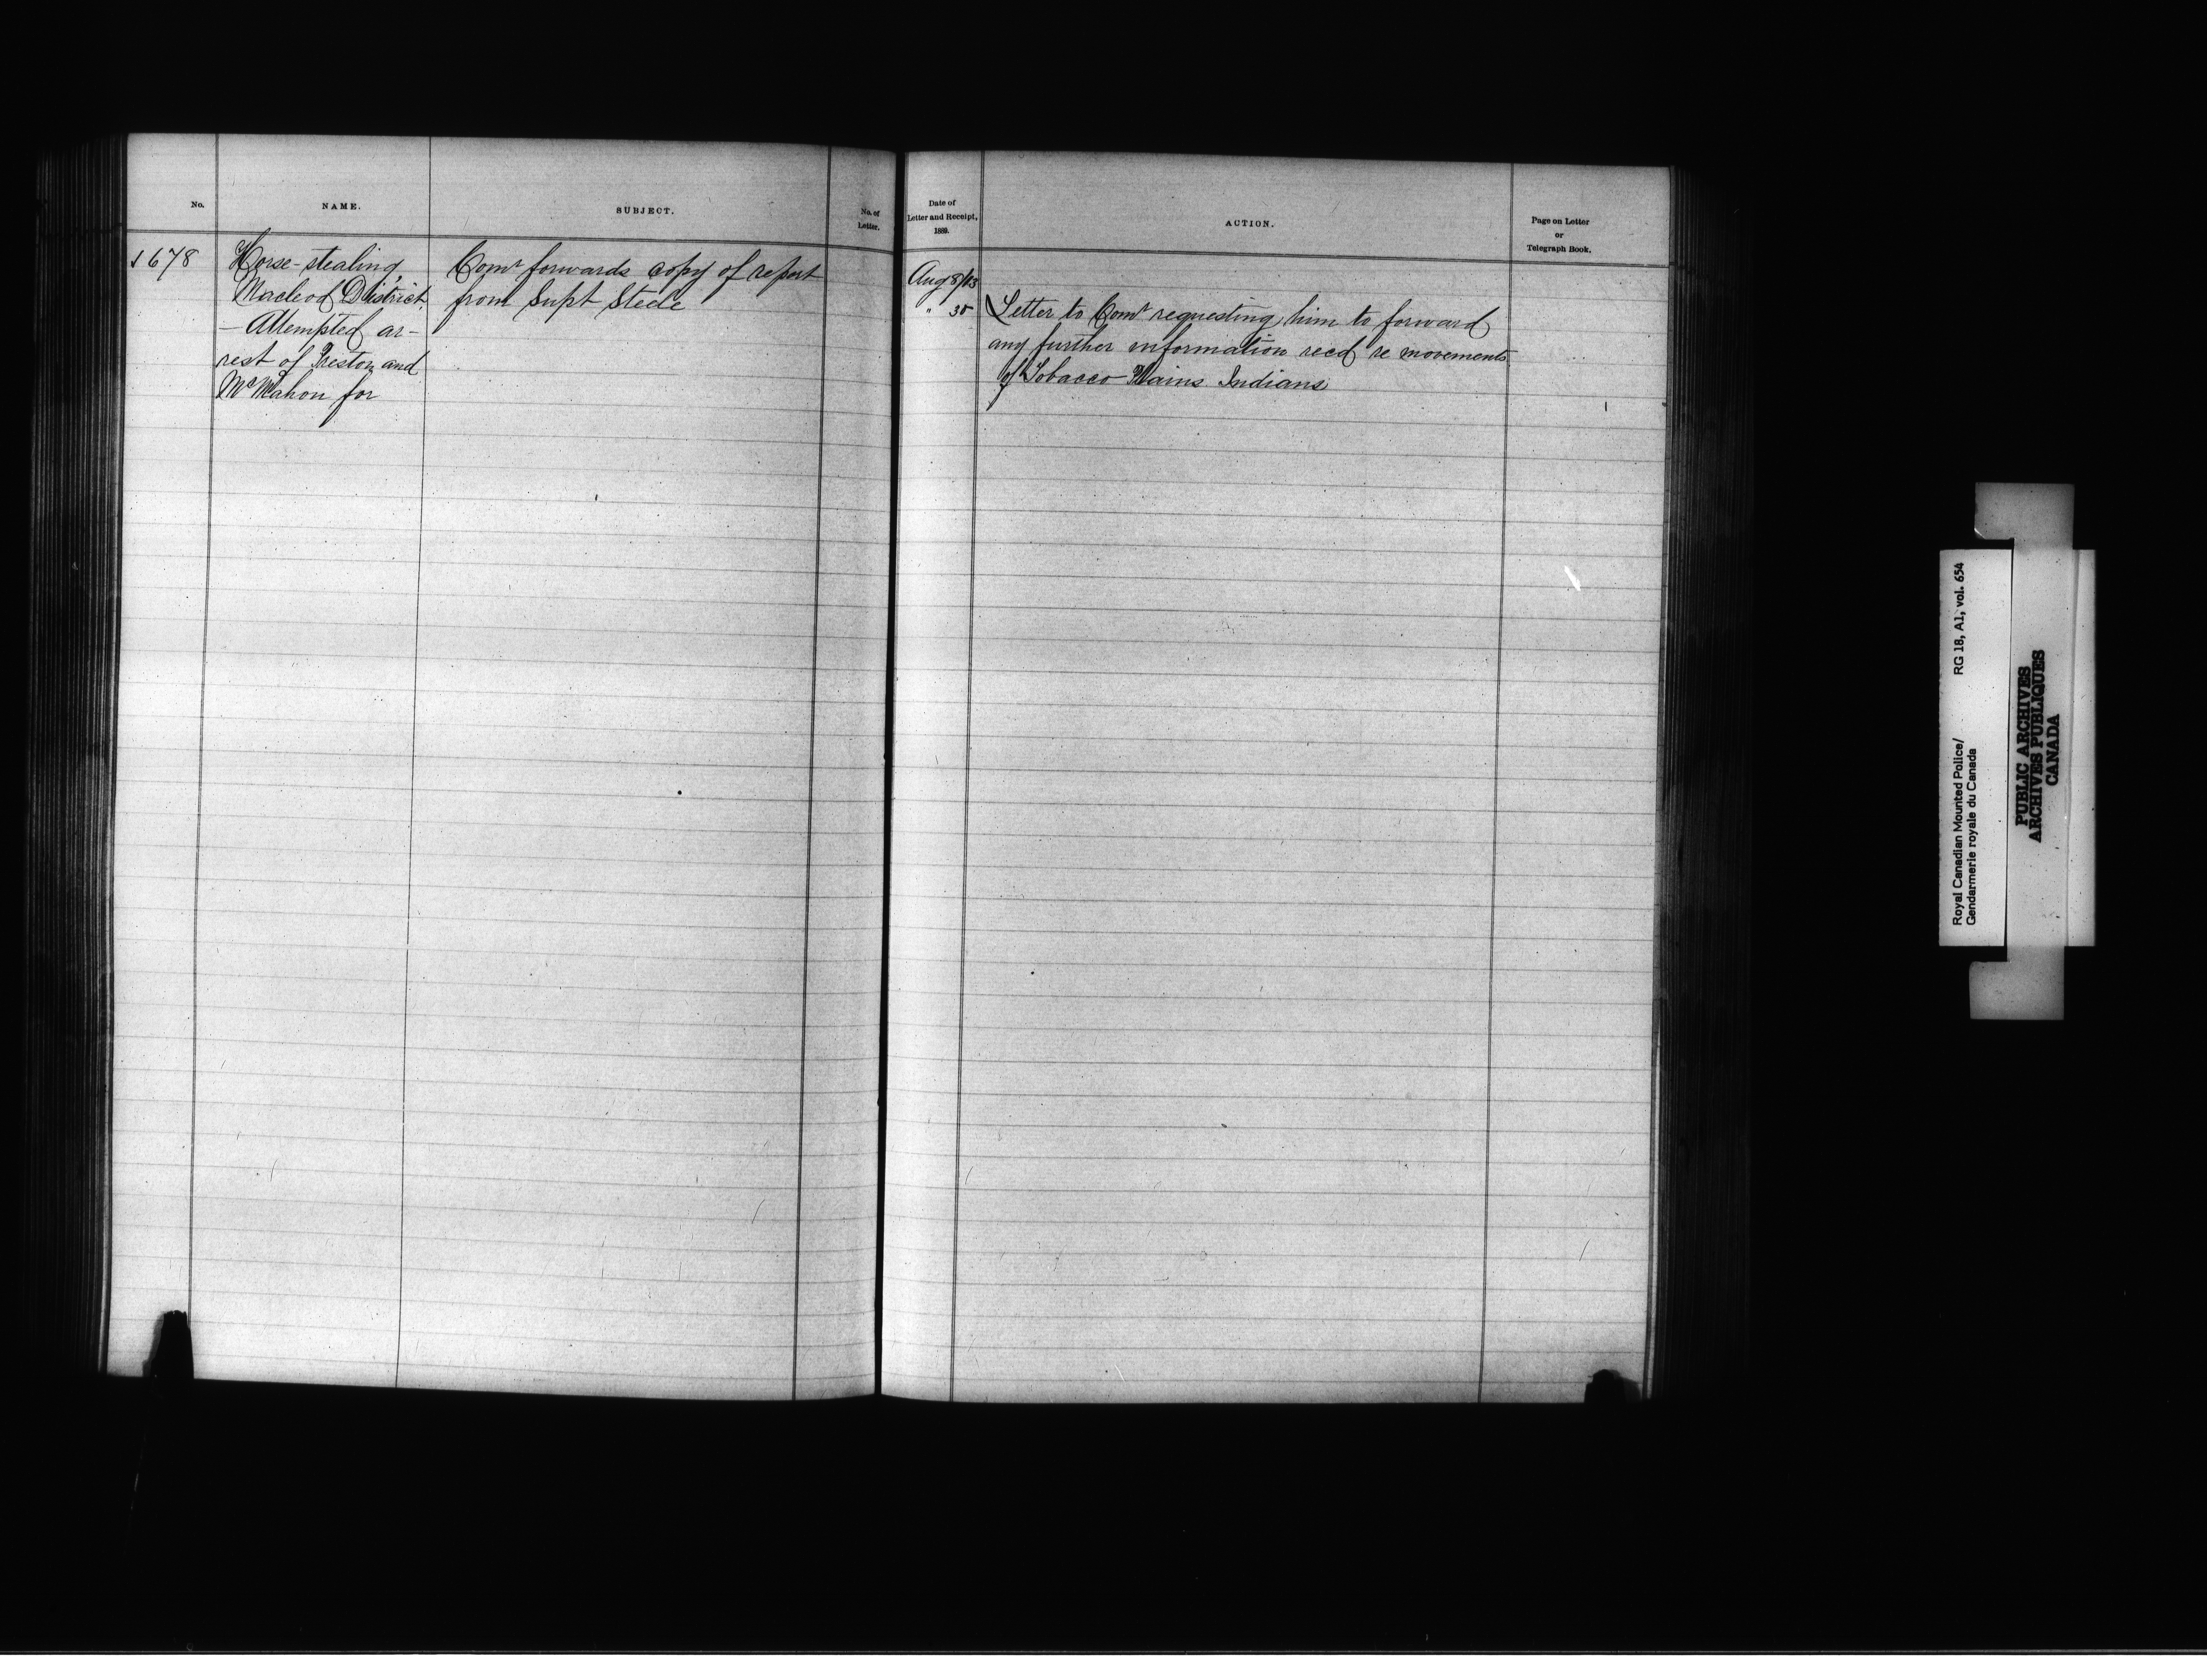 No.
NAME.
SUBJECT.
No. of
Letter.
1678
Horse-stealing,
Macleod District
- Attempted ar-
rest of Preston and
McMahon for
Comr forwards copy of report
from Supt Steele
Date of
Letter and Receipt,
1889.
ACTION.
Page on Letter
or
Telegraph Book.
Aug 8/13
" 30
Letter to Comr requesting him to forward
any further information recd re movements
of Tobacco Plains Indians
Royal Canadian Mounted Police/ RG 18, A1, vol. 654
Gendarmerie royale du Canada
PUBLIC ARCHIVES
ARCHIVES PUBLIQUES
CANADA